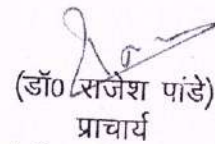 (डॉ0 राजेश पांडे)
प्राचार्य